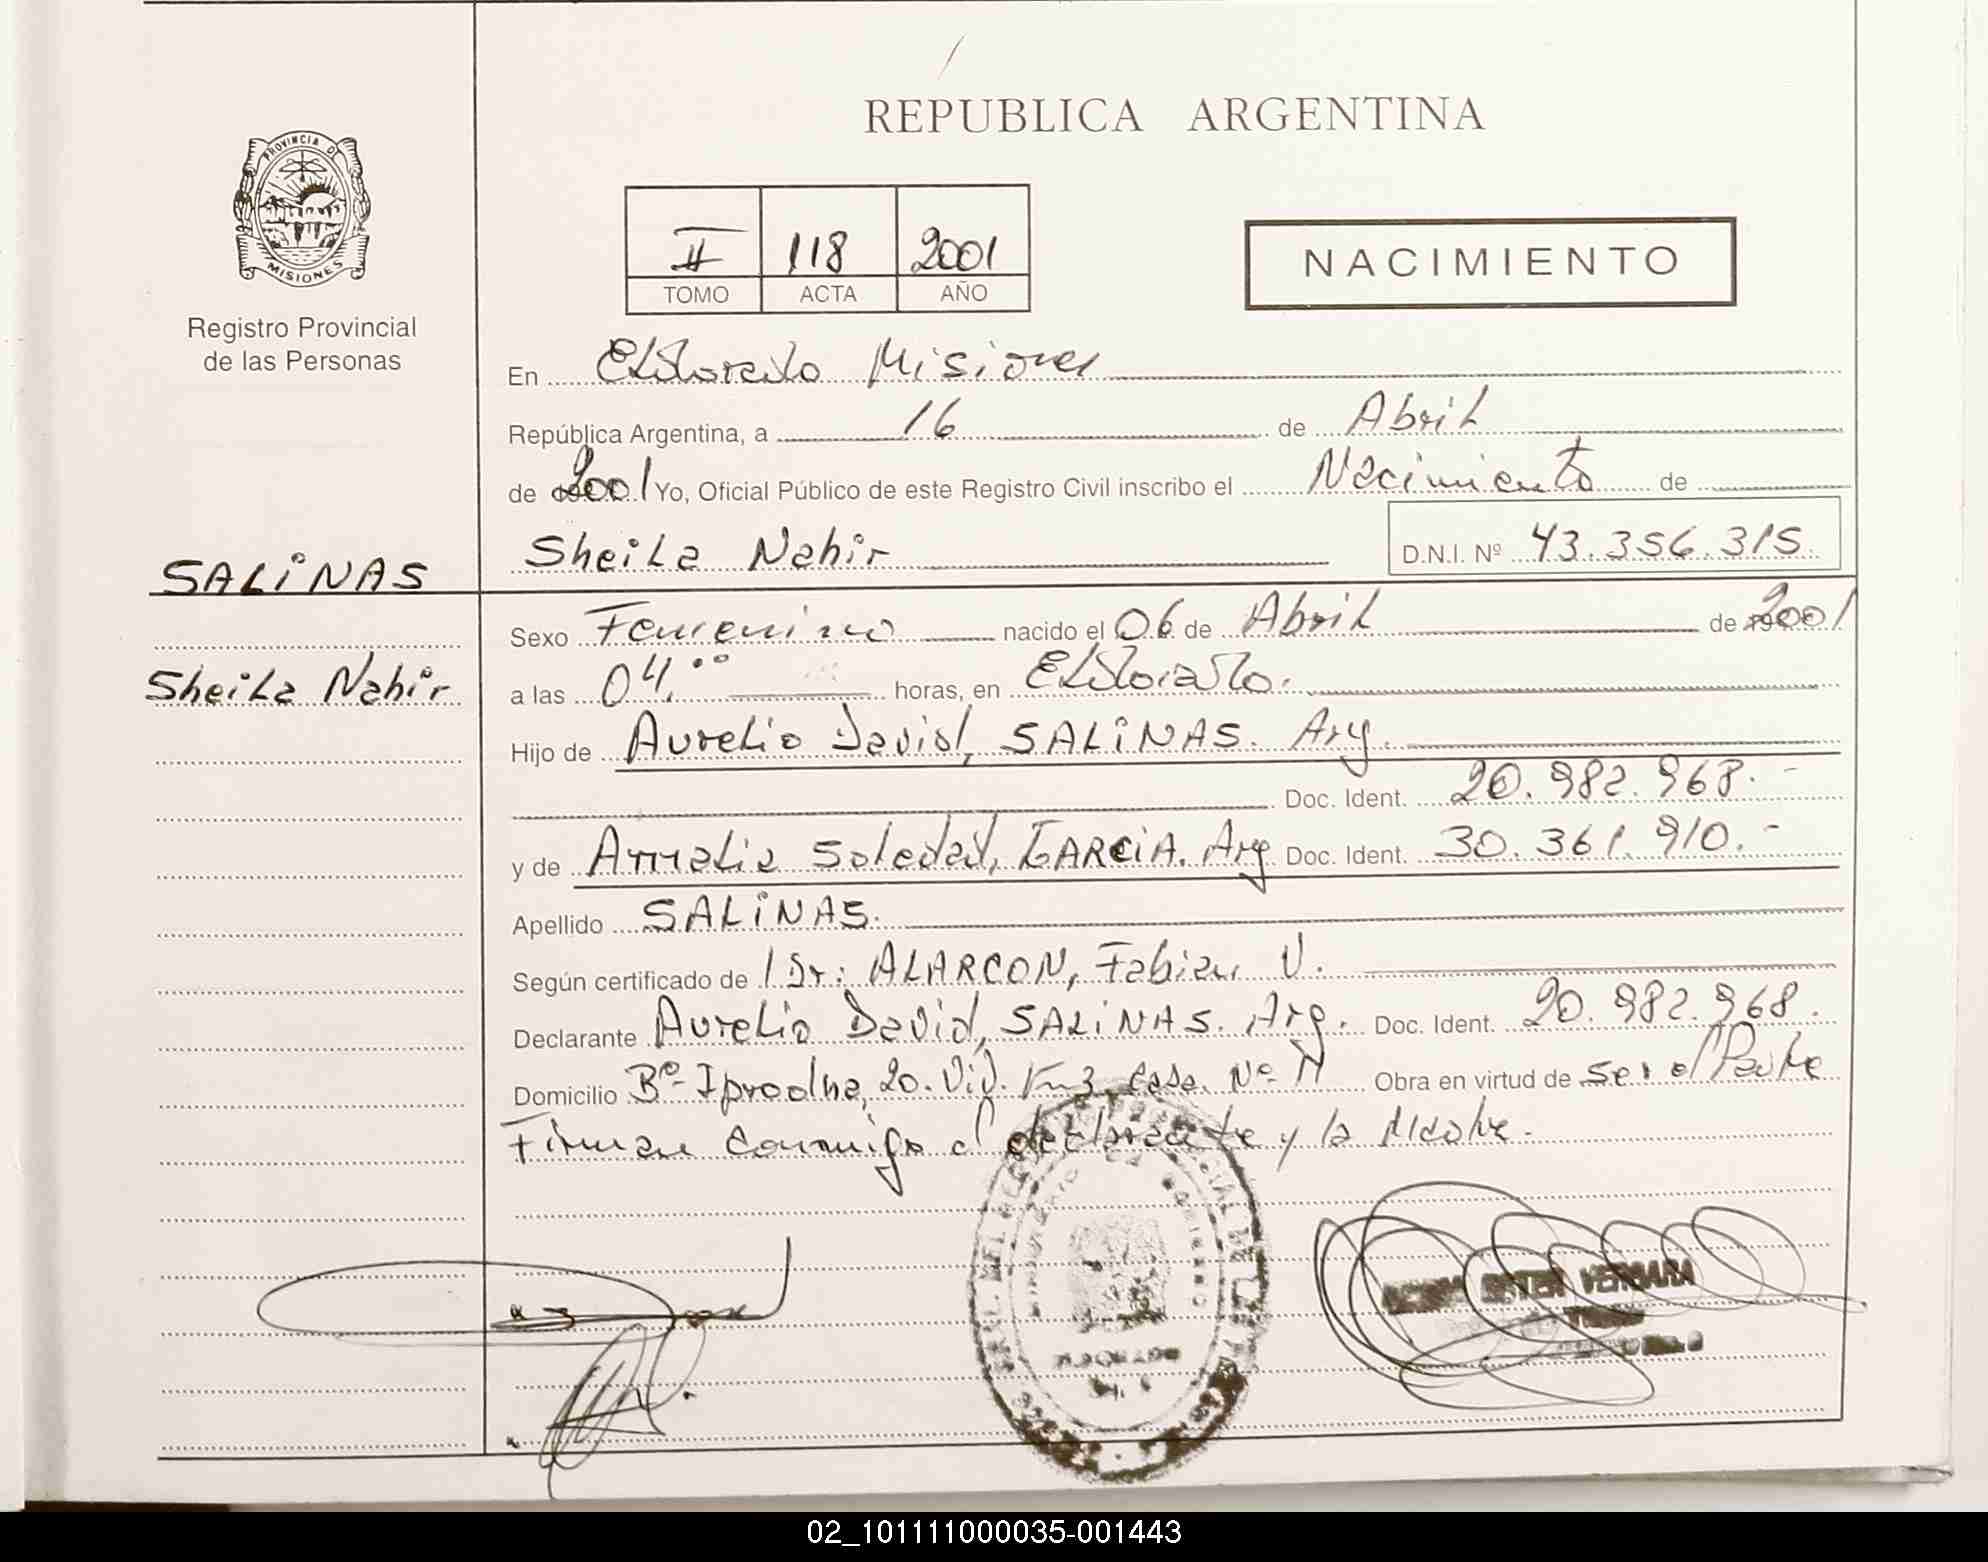 REPUBLICA ARGENTINA
PROVINCIA DE
MISIONES
Registro Provincial
de las Personas
II 118 2001
TOMO ACTA AÑO
NACIMIENTO
En Eldorado Misiones
República Argentina, a 16 de Abril
de 2001 Yo, Oficial Público de este Registro Civil inscribo el Nacimiento de
Sheila Nahir D.N.I. Nº 43.356.315
SALINAS
Sheila Nahir
Sexo Femenino nacido el 06 de Abril de 2001
a las 04.00 horas, en Eldorado.
Hijo de Aurelio David, SALINAS. Arg.
Doc. Ident. 20.982.968.-
y de Amalia Soledad, GARCIA. Arg Doc. Ident. 30.361.910.-
Apellido SALINAS.
Según certificado de Dr: ALARCON, Fabian V.
Declarante Aurelio David, SALINAS. Arg. Doc. Ident. 20.982.968.
Domicilio Bº- Iprodha, 20. Viv. Km3, Casa. Nº Obra en virtud de ser el Padre
Firman conmigo el declarante y la Madre.
ESTER VERGARA
02_101111000035-001443